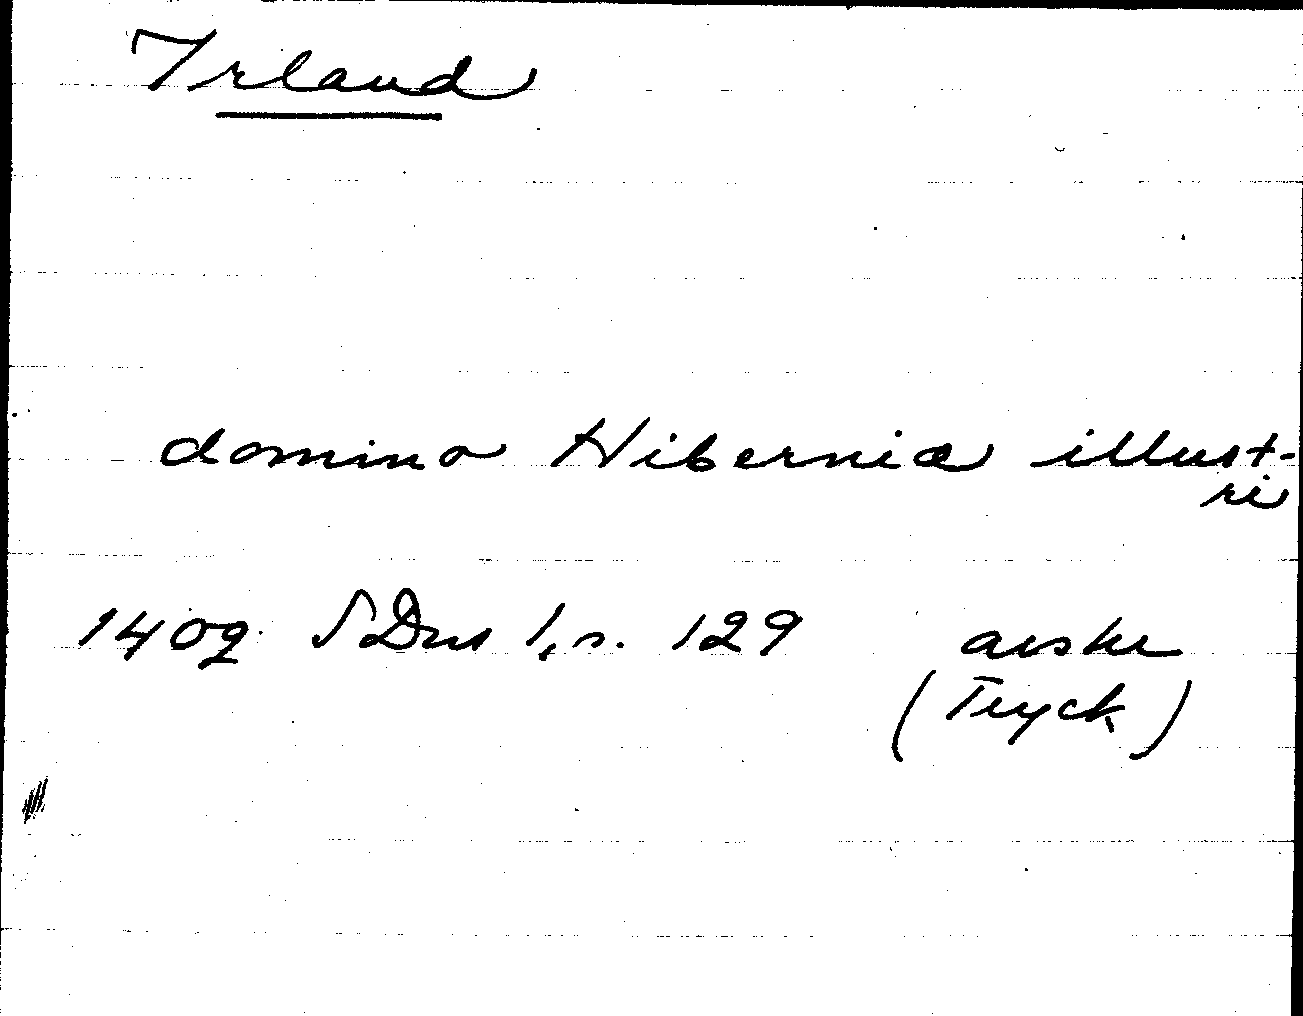 Irland
domino Hiberniæ illust-
ri
1409 SDns 1, s. 129 avskr
(Tryck)